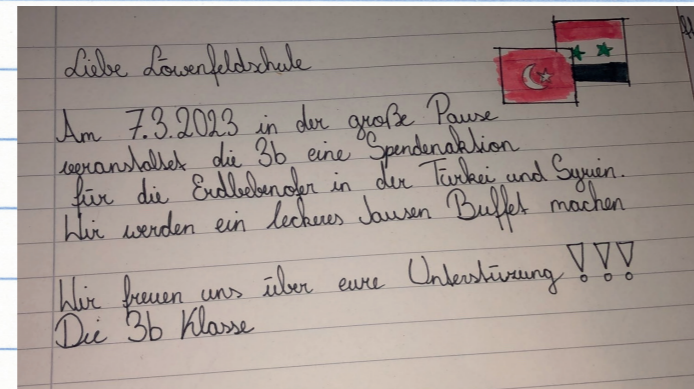 Liebe Löwenfeldschule
Am 7.3.2023 in der große Pause
veranstaltet die 3b eine Spendenaktion
für die Erdbebenofer in der Türkei und Syrien.
Wir werden ein leckeres Jausen Buffet machen
Wir freuen uns über eure Unterstüzung !!!
Die 3b Klasse